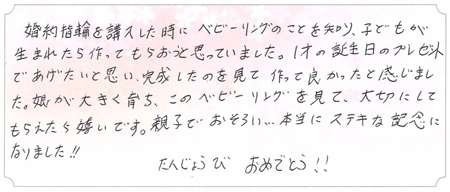 婚約指輪を購入した時に ベビーリングのことを知り、子どもが
生まれたら作ってもらおうと思っていました。1才の誕生日のプレゼント
であげたいと思い、完成したのを見て 作って良かったと感じまし
た。娘が大きく育ち、このベビーリングを見て、大切にして
もらえたら嬉いです。親子でおそろい…本当にステキな記念に
なりました!!
たんじょうび おめでとう!!